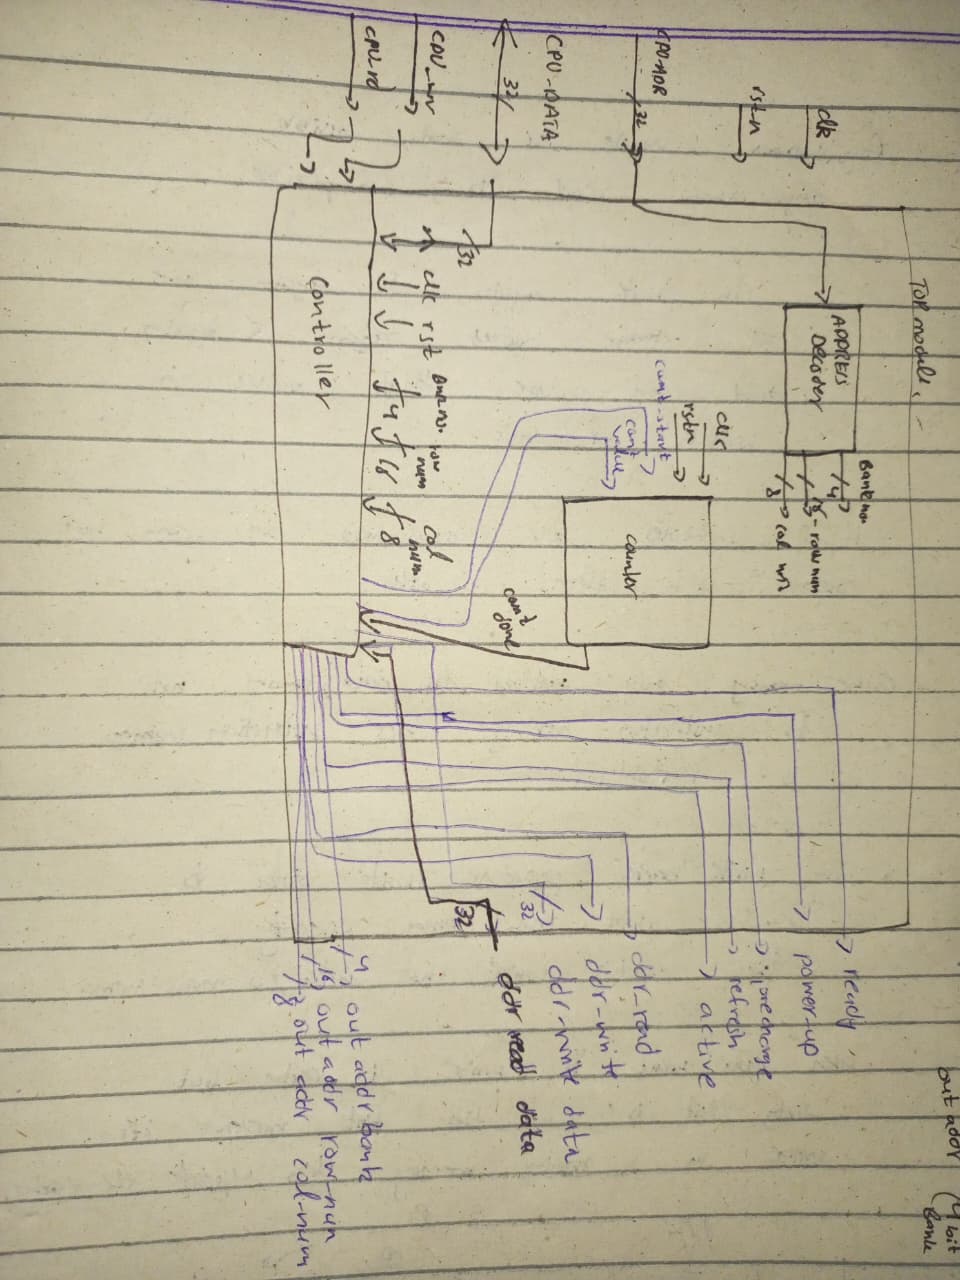 TOP module, -
clk
rstn
CPU-ADR
32
CPU-DATA
32
CPU_wr
CPU-rd
ADDRESS
Decoder
Bank num
4
16 - row num
8 col
clk
rstn
count-start
count
value
counter
count
done
32
clk
rst
Bank no.
4
row
num
16
col
num.
8
Controller
ready
power-up
precharge
refresh
active
ddr_read
ddr-write
32
ddr-write data
32
ddr read data
4 out addr bank
16 out addr row-num
8 out addr col-num
out addr (4 bit
Bank